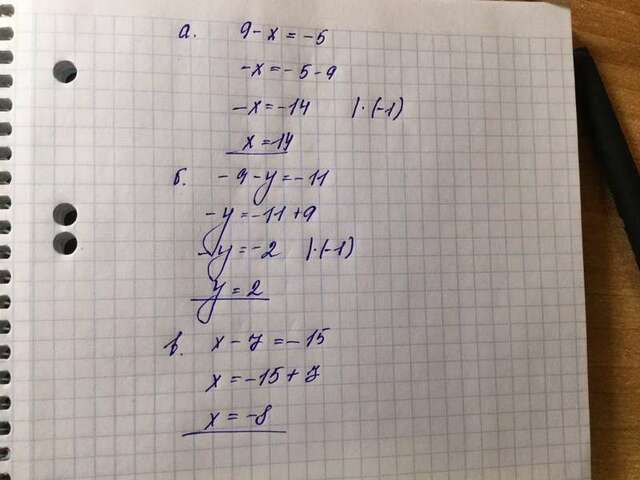 а. 9 - x = -5
-x = -5 - 9
-x = -14 |·(-1)
x = 14
б. -9 - y = -11
-y = -11 + 9
-y = -2 |·(-1)
y = 2
в. x - 7 = -15
x = -15 + 7
x = -8